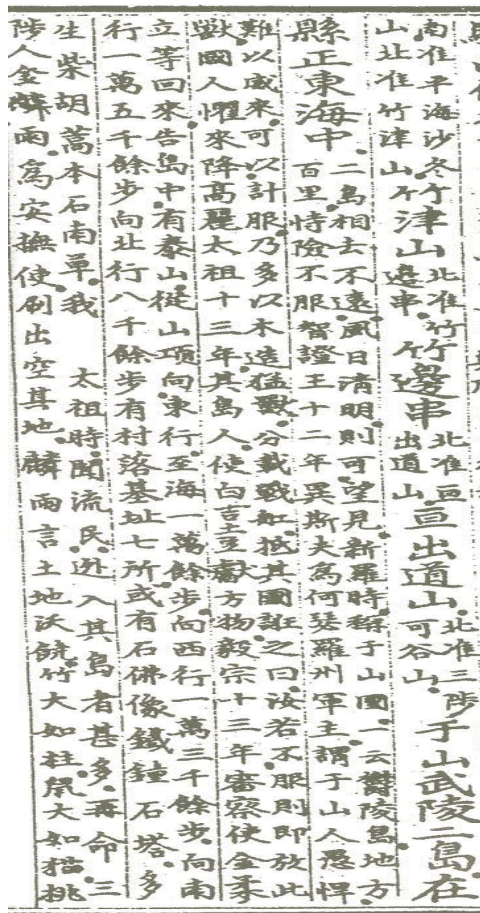 南准平海沙冬
山北准竹津山
竹津山
北准竹
邊串
竹邊串
北准亘
出道山
亘出道山
北准三陟
可谷山
于山武陵二島在
縣正東海中
二島相去不遠風日清明則可望見新羅時稱于山國一云鬱陵島地方
百里恃險不服智證王十二年異斯夫爲何瑟羅州軍主謂于山人愚悍
難以威來可以計服乃多以木造猛獸分載戰舡抵其國誑之曰汝若不服則即放此
獸國人懼來降高麗太祖十三年其島人使白吉土豆獻方物毅宗十三年審察使金柔
立等回來告島中有泰山從山頂向東行至海一萬餘步向西行一萬三千餘步向南
行一萬五千餘步向北行八千餘步有村落基址七所或有石佛像鐵鐘石塔多
生柴胡蒿本石南草我 太祖時聞流民逃入其島者甚多再命三
陟人金麟雨爲安撫使刷出空其地麟雨言土地沃饒竹大如柱鼠大如猫桃